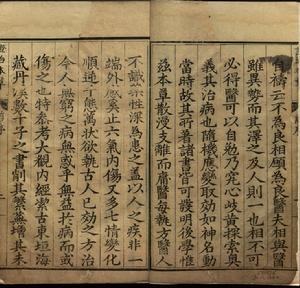 自禱云不為良相願為良醫夫相與醫
雖異勢而其澤之及人則一也相不可
必得醫可以自勉乃究心岐黃探索奧
義其治病也隨機應變取効如神名動
當時故其所著諸書皆可護明後學惟
茲本章散漫支離而庸醫每執方醫人
不識藥性深為患之蓋以人之疾非一
端外感奚止六氣內傷又多七情變化
順逆千態萬狀欲執古人已効之方治
今人無窮之病無惑乎無益於病而或
傷之也特叅考大觀內經潔古東垣海
藏丹溪數十子之書削其繁蕪增其未